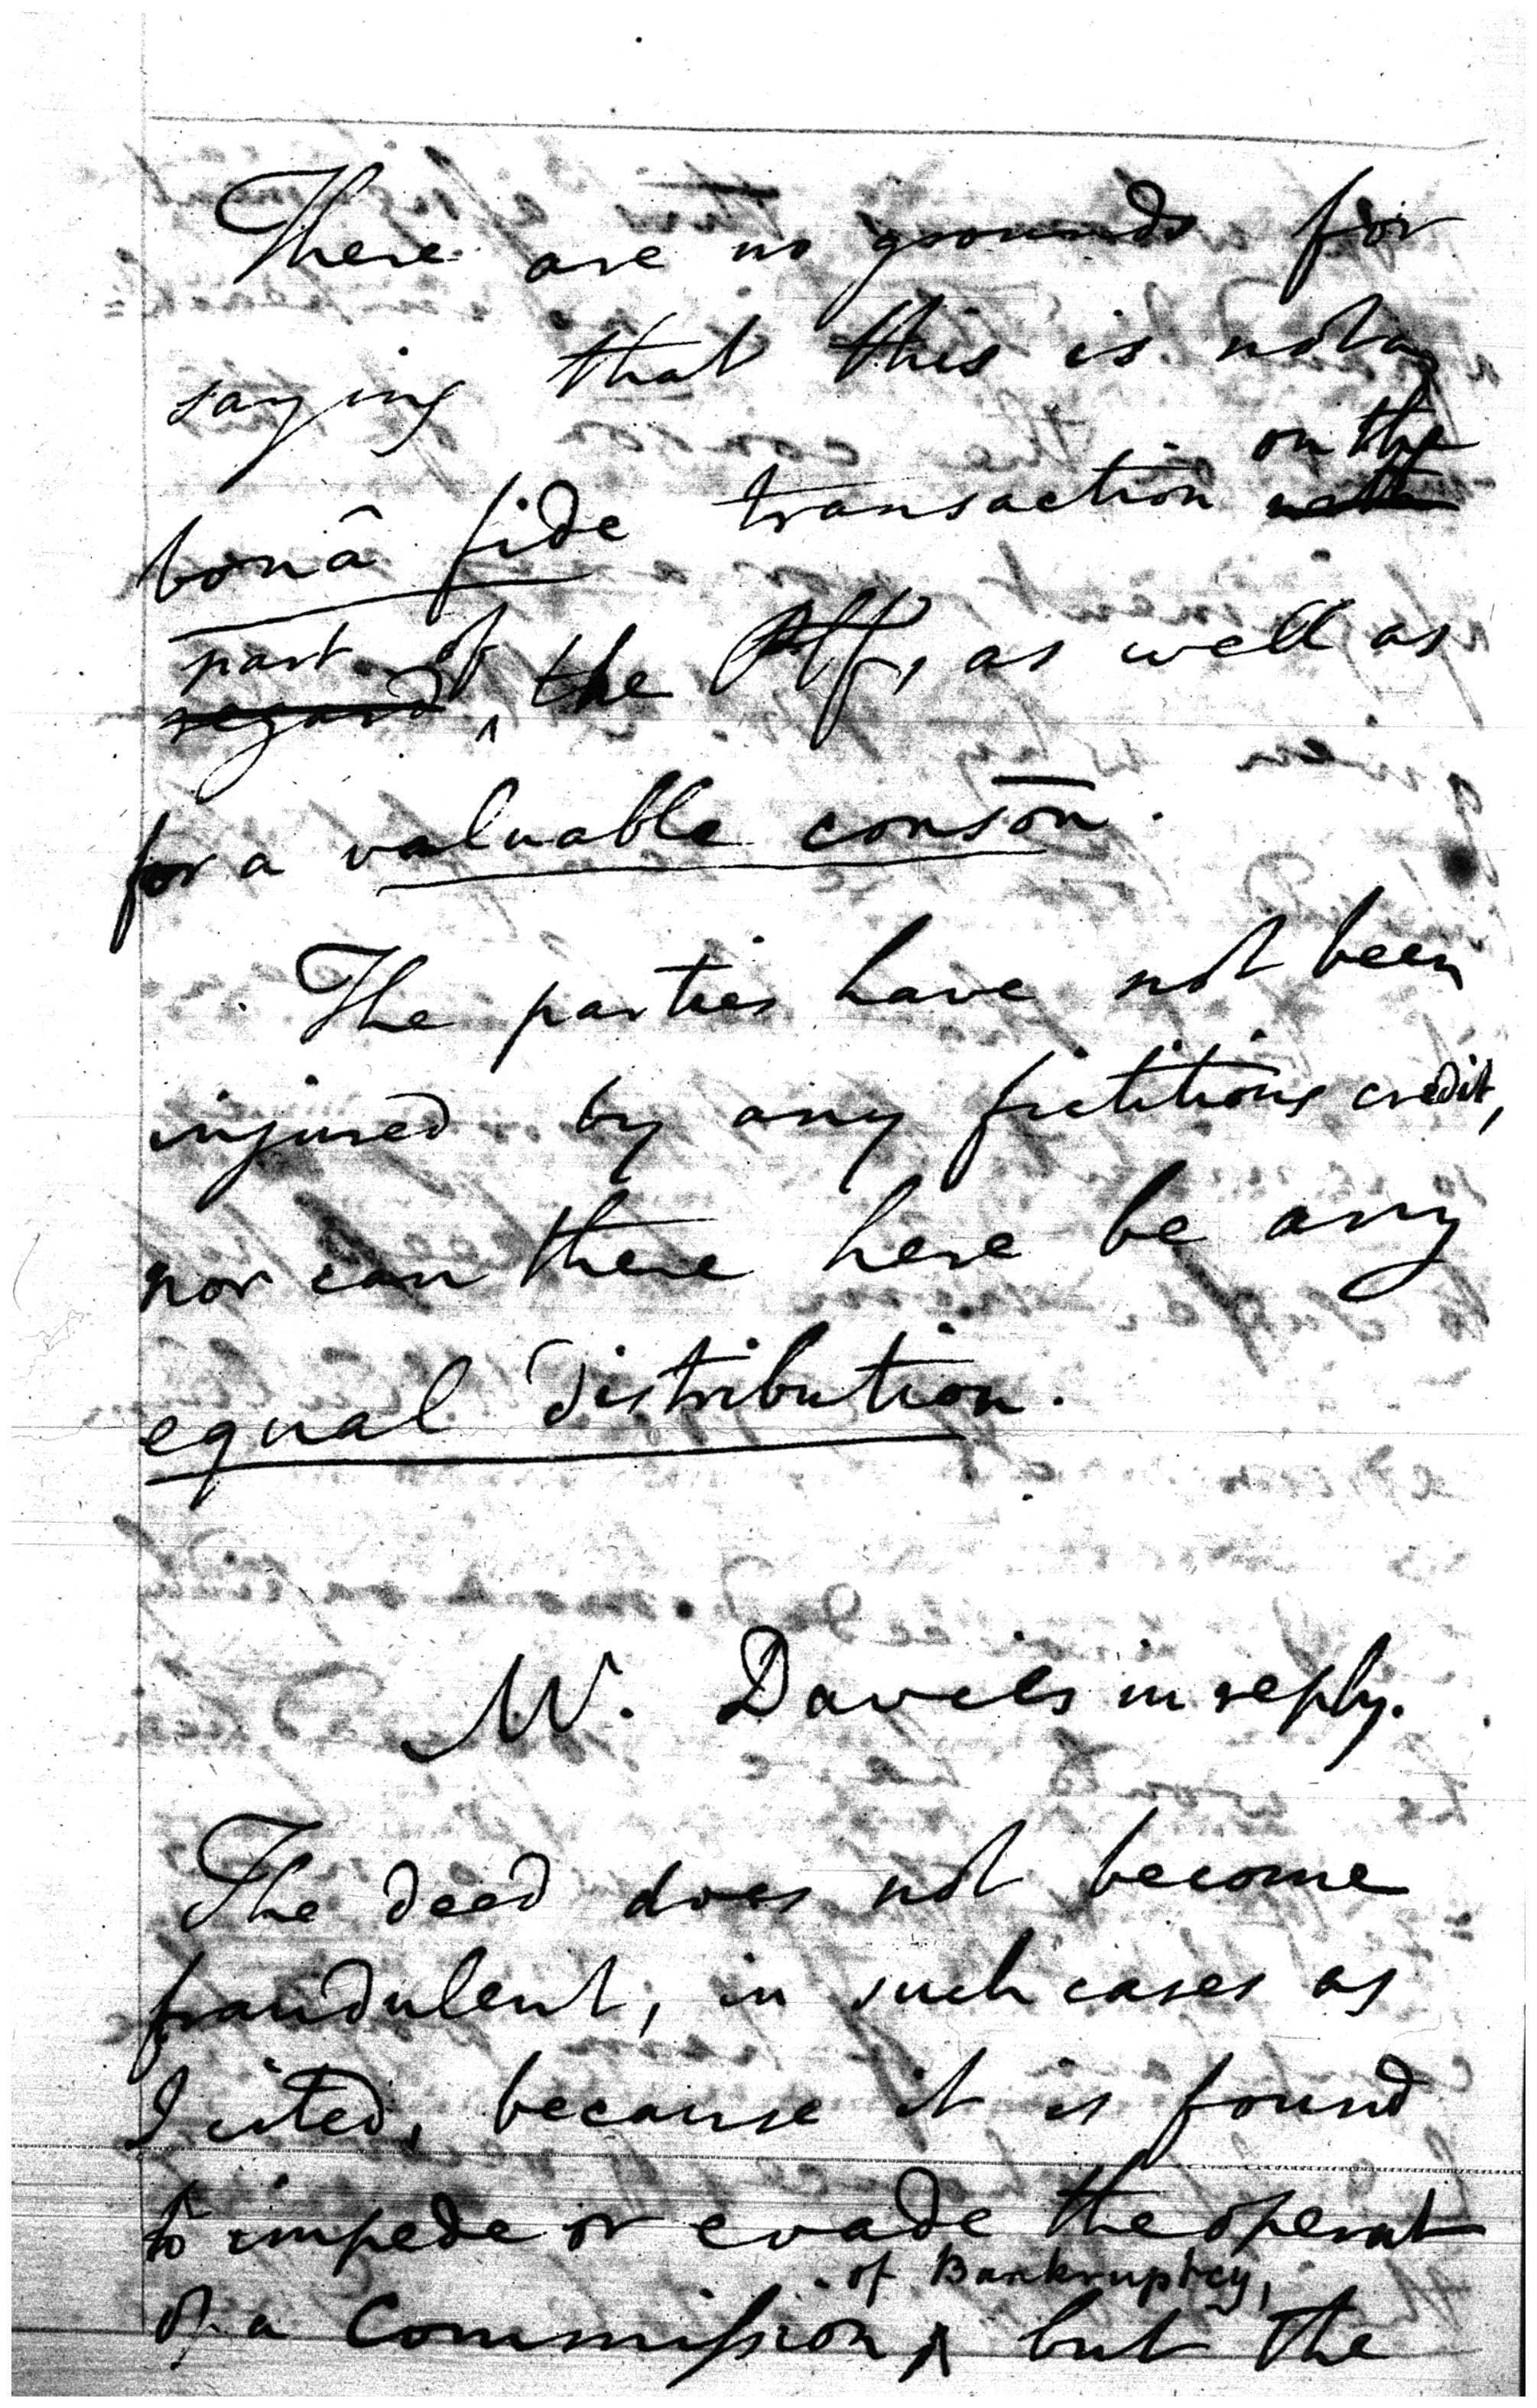 There are no grounds for
saying that this is not a
bonâ fide transaction on the
part of the Ptff, as well as
for a valuable conson.
The parties have not been
injured by any fictitious credit,
nor can there here be any
equal distribution.
W. Davies in reply.
The deed does not become
fraudulent, in such cases as
I cited, because it is found
to impede or evade the operat
of a Commission of Bankruptcy, but the